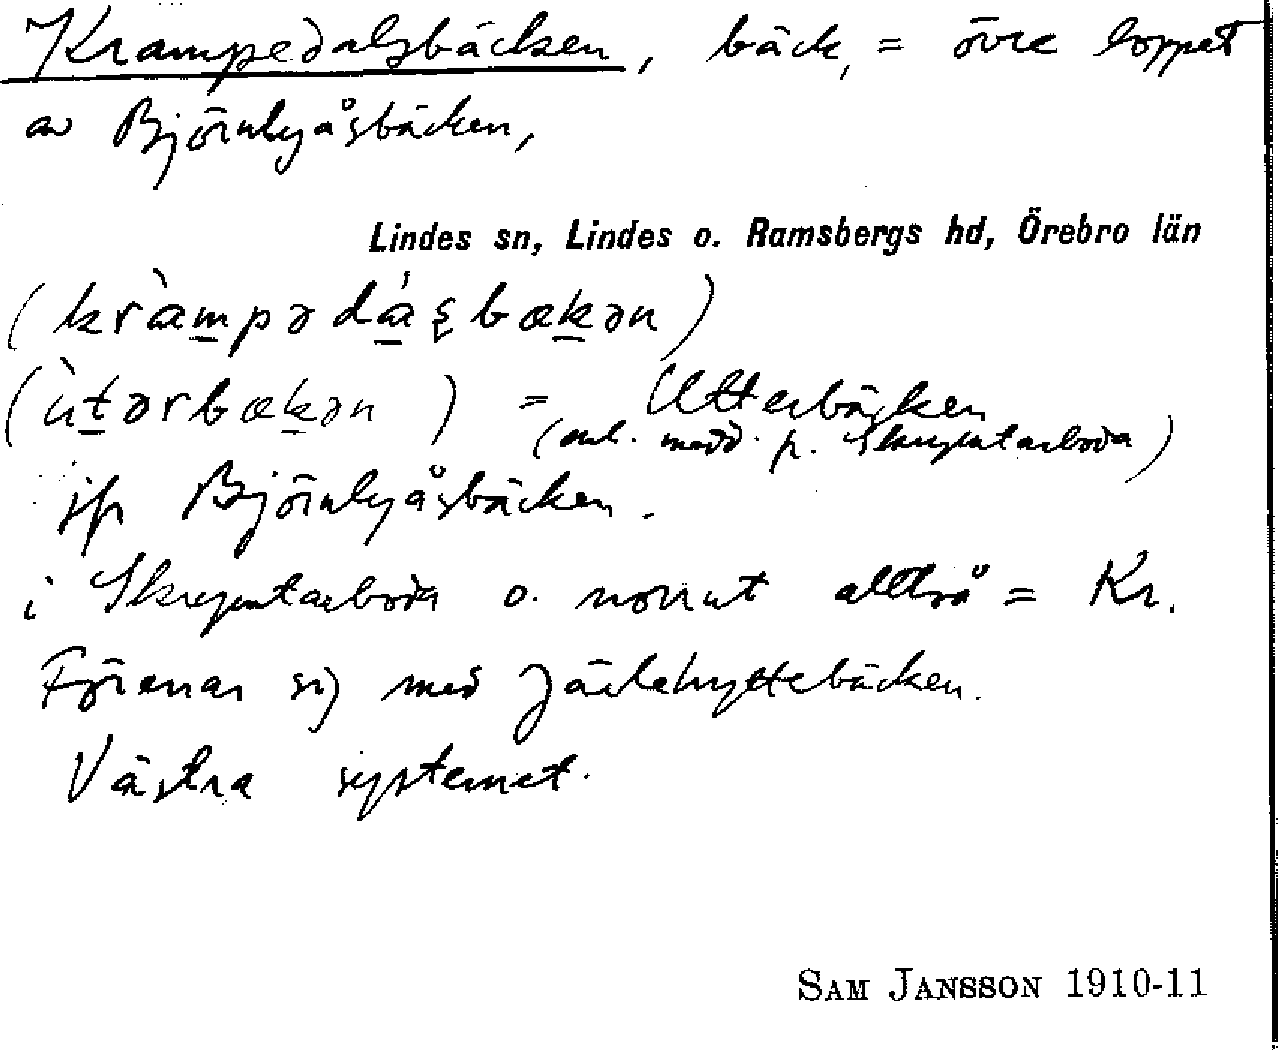 Krampedalsbäcken, bäck, = övre loppet
av Björnlyåsbäcken,
Lindes sn, Lindes o. Ramsbergs hd, Örebro län
(kràmpədáʂbækən)
(ùtərbækən) = Utterbäcken
(enl. medd. fr. Skrymtarboda)
jfr Björnlyåsbäcken.
i Skrymtarboda o. norrut alltså = Kr.
Förenar sig med Järlehyttebäcken.
Västra systemet.
SAM JANSSON 1910-11